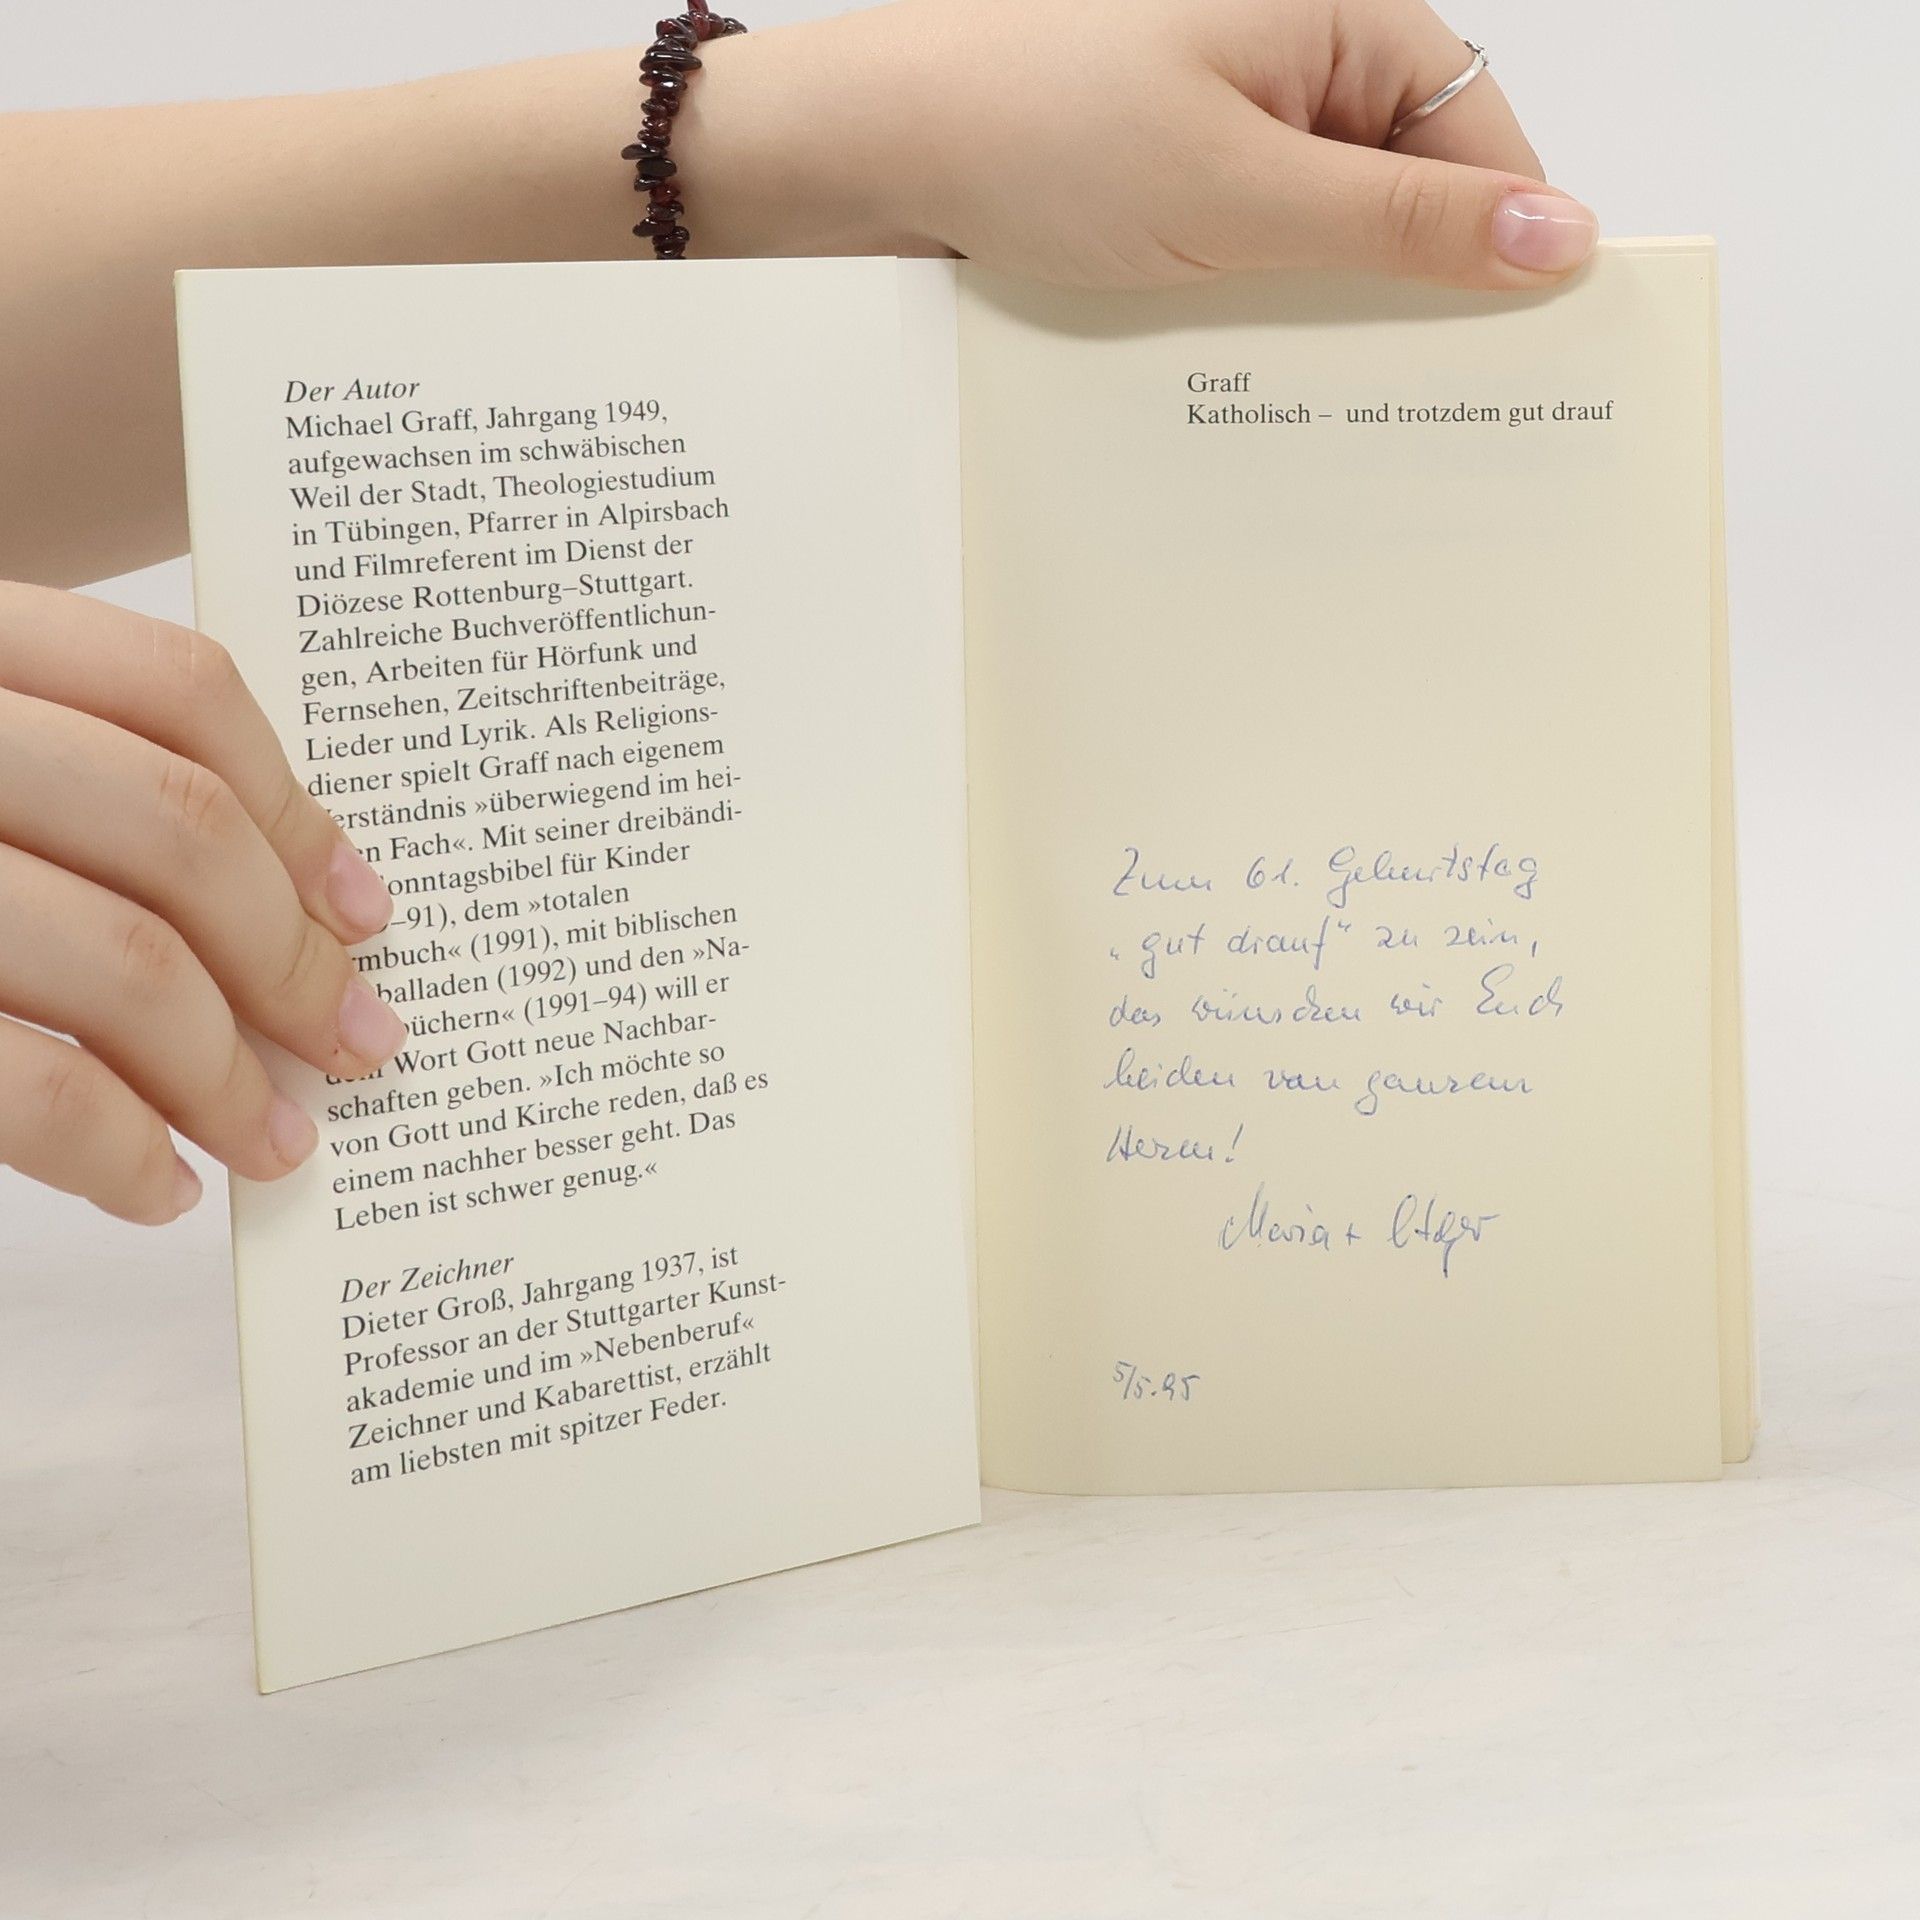 Der Autor
Michael Graff, Jahrgang 1949,
aufgewachsen im schwäbischen
Weil der Stadt, Theologiestudium
in Tübingen, Pfarrer in Alpirsbach
und Filmreferent im Dienst der
Diözese Rottenburg–Stuttgart.
Zahlreiche Buchveröffentlichun-
gen, Arbeiten für Hörfunk und
Fernsehen, Zeitschriftenbeiträge,
Lieder und Lyrik. Als Religions-
diener spielt Graff nach eigenem
Verständnis »überwiegend im hei-
Fach«. Mit seiner dreibändi-
onntagsbibel für Kinder
–91), dem »totalen
mbuch« (1991), mit biblischen
balladen (1992) und den »Na-
büchern« (1991–94) will er
dem Wort Gott neue Nachbar-
schaften geben. »Ich möchte so
von Gott und Kirche reden, daß es
einem nachher besser geht. Das
Leben ist schwer genug.«
Der Zeichner
Dieter Groß, Jahrgang 1937, ist
Professor an der Stuttgarter Kunst-
akademie und im »Nebenberuf«
Zeichner und Kabarettist, erzählt
am liebsten mit spitzer Feder.
Graff
Katholisch – und trotzdem gut drauf
Zum 61. Geburtstag
„gut drauf“ zu sein,
das wünschen wir Euch
beiden von ganzem
Herzen!
Maria +
5/5.95